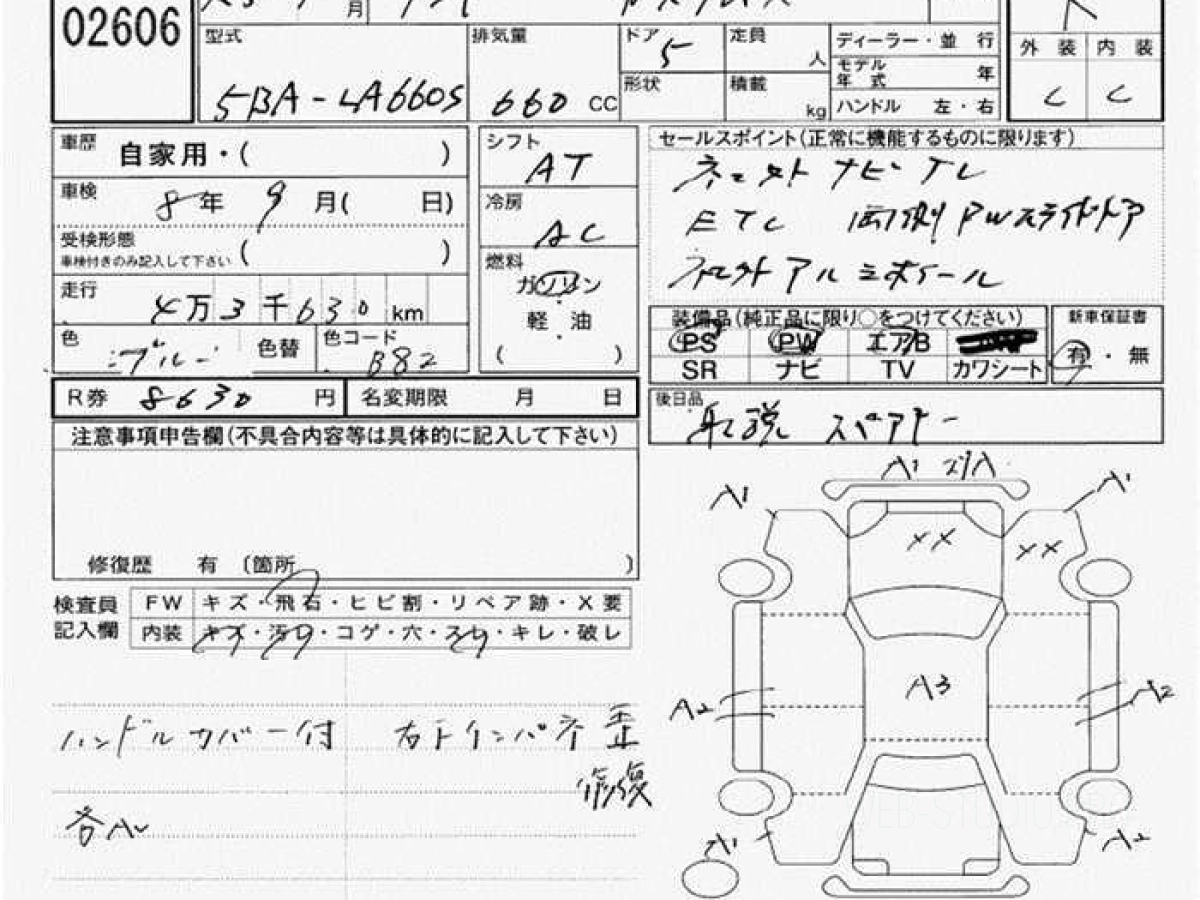 02606
月
型式 5BA-LA660S
排気量 660 CC
ドア 5
定員 人
形状
積載 kg
ディーラー・並 行
モデル年式 年
ハンドル 左・右
外 装 内 装
C C
車歴 自家用・( )
車検 8年 9月( 日)
受検形態 ( )
車検付きのみ記入して下さい
走行 4万3千630 km
色 ブルー 色替 色コード B82
シフト AT
冷房 AC
燃料
ガソリン
・
軽 油
( )
セールスポイント(正常に機能するものに限ります)
ナビ・TV
ETC 両側PWスライドドア
アルミホイール
装備品(純正品に限り○をつけてください)
PS PW エアB
SR ナビ TV カワシート
新車保証書
有・無
R券 8630 円 名変期限 月 日
後日品 取説 スペアキー
注意事項申告欄(不具合内容等は具体的に記入して下さい)
修復歴 有 〔箇所 〕
検査員記入欄
FW キズ・飛石・ヒビ割・リペア跡・X要
内装 キズ・汚レ・コゲ・穴・スレ・キレ・破レ
ハンドルカバー付 右Fインパネ歪
修復
各A
A1 スリA
A1 A1
XX XX
A3
A2 A2
A1 A2